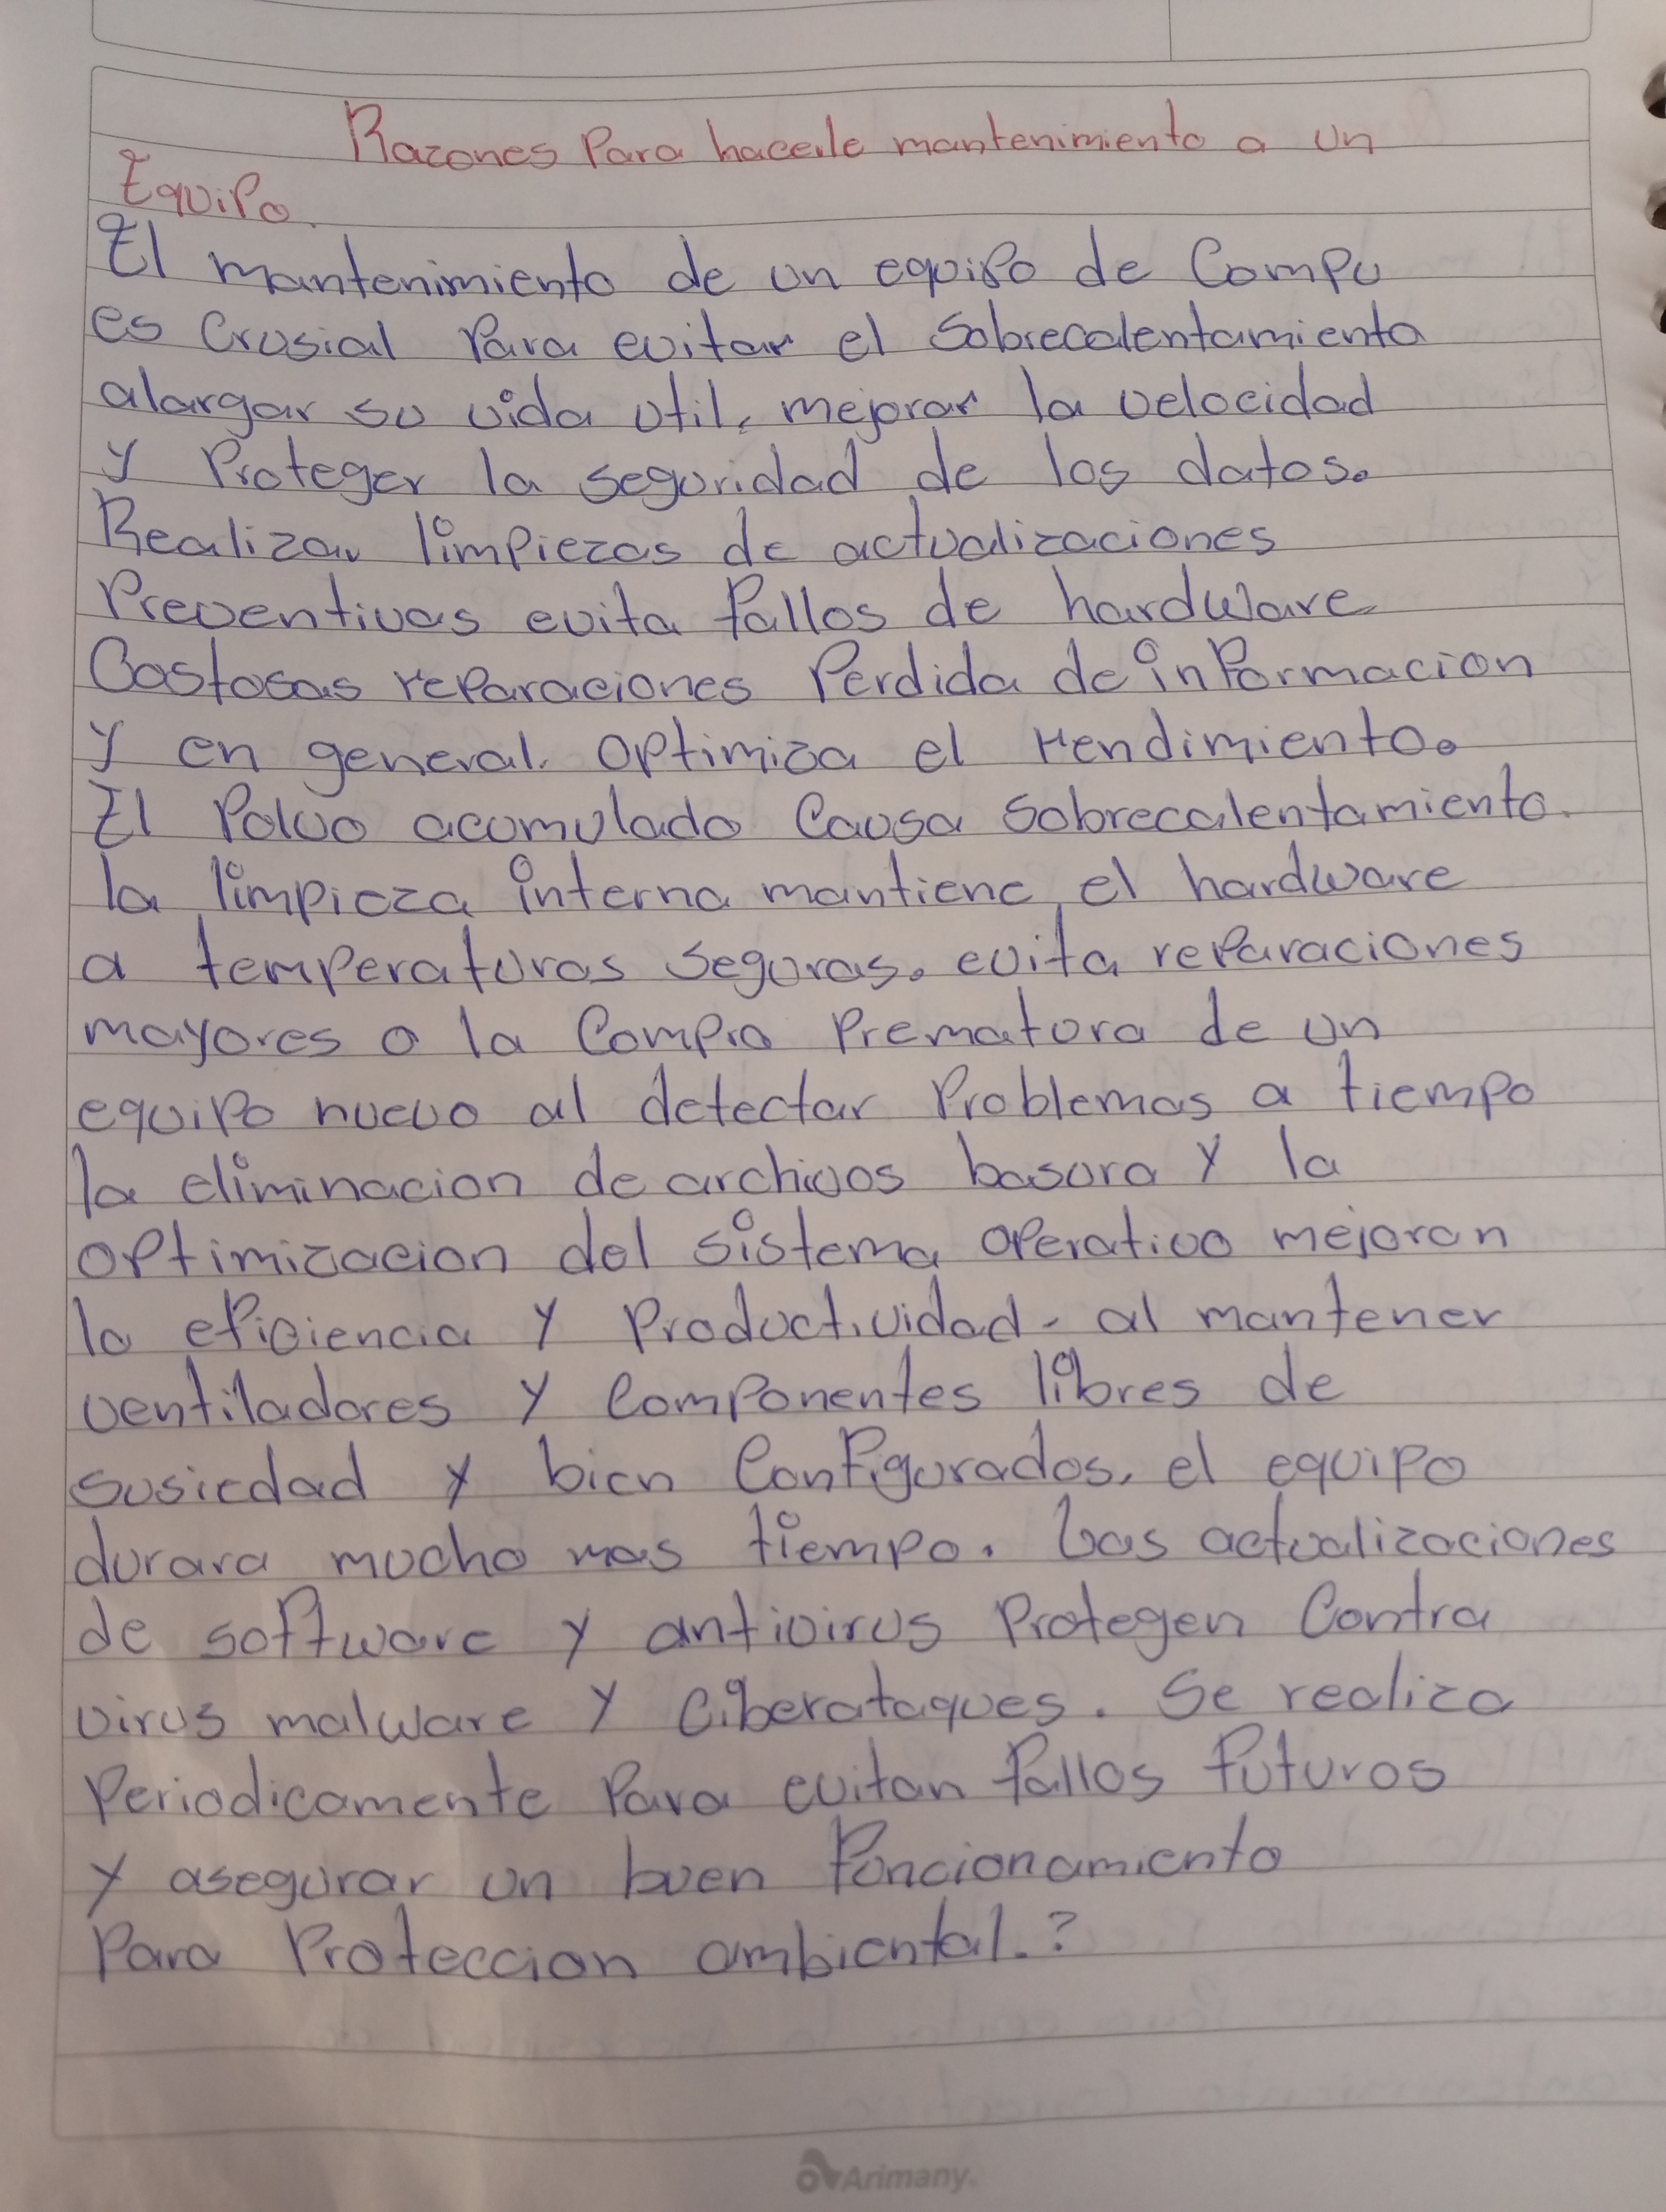 Razones Para hacerle mantenimiento a un
Equipo.
El mantenimiento de un equipo de Compu
es Crusial Para evitar el Sobrecalentamiento
alargar su vida util, mejorar la velocidad
y Proteger la seguridad de los datos.
Realizar limpiezas de actualizaciones
Preventivas evita fallos de hardware
Costosas reparaciones Perdida de informacion
y en general. optimiza el rendimiento.
El Polvo acumulado Causa sobrecalentamiento.
la limpieza interna mantiene el hardware
a temperaturas seguras. evita reparaciones
mayores o la Compra Prematura de un
equipo nuevo al detectar Problemas a tiempo
la eliminacion de archivos basura y la
optimizacion del sistema operativo mejoran
la eficiencia y Productividad. al mantener
ventiladores y Componentes libres de
susiedad y bien Configurados, el equipo
durara mucho mas tiempo. Las actualizaciones
de software y antivirus Protegen Contra
virus malware y Ciberataques. Se realiza
Periodicamente Para evitan fallos futuros
y asegurar un buen funcionamiento
Para Proteccion ambiental.?
Arimany.